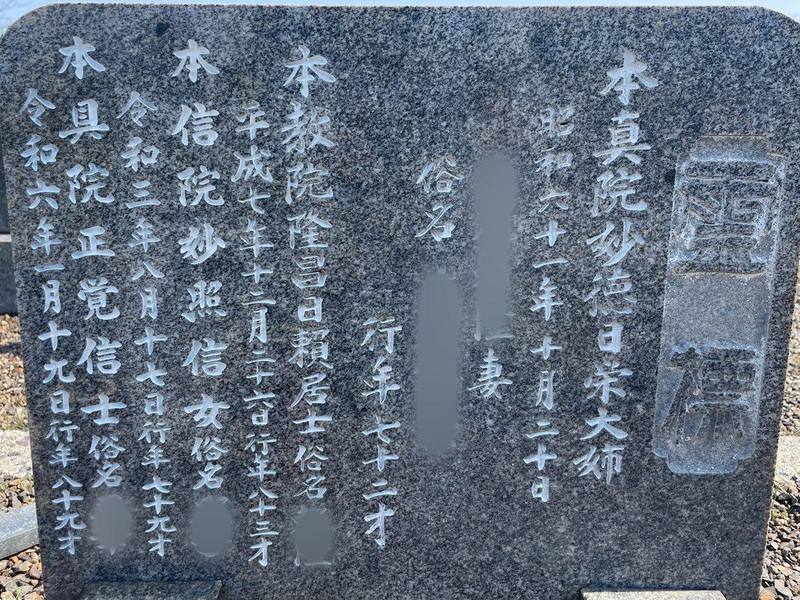 霊標
本真院妙徳日栄大姉
昭和六十一年十月二十日
妻
俗名
行年七十二才
本教院隆昌日頼居士俗名
平成七年十二月二十六日行年八十三才
本信院妙照信女俗名
令和三年八月十七日行年七十九才
本具院正覚信士俗名
令和六年一月十九日行年八十九才